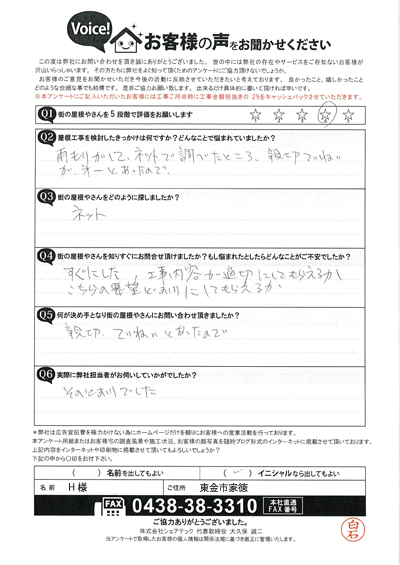 Voice! お客様の声をお聞かせください
この度は弊社にお問い合わせを頂き誠にありがとうございました。世の中には弊社の存在やサービスをご存知ないお客様が
沢山いらっしゃいます。その方たちに弊社をよく知って頂くためのアンケートにご協力頂けないでしょうか。
お客様のご意見をお聞かせいただき今後の活動に反映させていただきたいと考えております。良かったこと、嬉しかったこと
どのような些細な事でも結構です。是非ご協力お願い致します。出来るだけ具体的に書いて頂ければ幸いです。
※本アンケートにご記入いただいたお客様には工事ご用命時に工事金額税抜きの2%をキャッシュバックさせていただきます。
Q1 街の屋根やさんを5段階で評価をお願いします ☆ ☆ ☆ ☆ ☆
Q2 屋根工事を検討したきっかけは何ですか?どんなことで悩まれていましたか?
雨もりがして、ネットで調べたところ、親切ていねい
が、第一とあったので、
Q3 街の屋根やさんをどのように探しましたか?
ネット
Q4 街の屋根やさんを知りすぐにお問合せ頂けましたか?もし悩まれたとしたらどんなことがご不安でしたか?
すぐにした、工事内容が適切にしてもらえるか
こちらの要望どおりにしてもらえるか
Q5 何が決め手となり街の屋根やさんにお問い合わせ頂きましたか?
親切、ていねいとあったので
Q6 実際に弊社担当者がお伺いしていかがでしたか?
そのとおりでした
※弊社は広告宣伝費を極力かけない為にホームページだけを頼りにお客様への営業活動を行っております。
本アンケート用紙またはお客様宅の調査風景や施工状況、お客様の顔写真を随時ブログ形式のインターネットに掲載させて頂いております。
上記内容をインターネットや印刷物に掲載させて頂いてもよろしいでしょうか?
下記の中から○印をお付け下さい。
( ) 名前を出してもよい ( ✓ ) イニシャルなら出してもよい
名前 H様 ご住所 東金市家徳
FAX 0438-38-3310 本社直通 FAX番号
ご協力ありがとうございました。
株式会社シェアテック 代表取締役 大久保 誠二
当アンケートで取得したお客様の個人情報は関係法規に基づき厳正に管理いたします。
白石